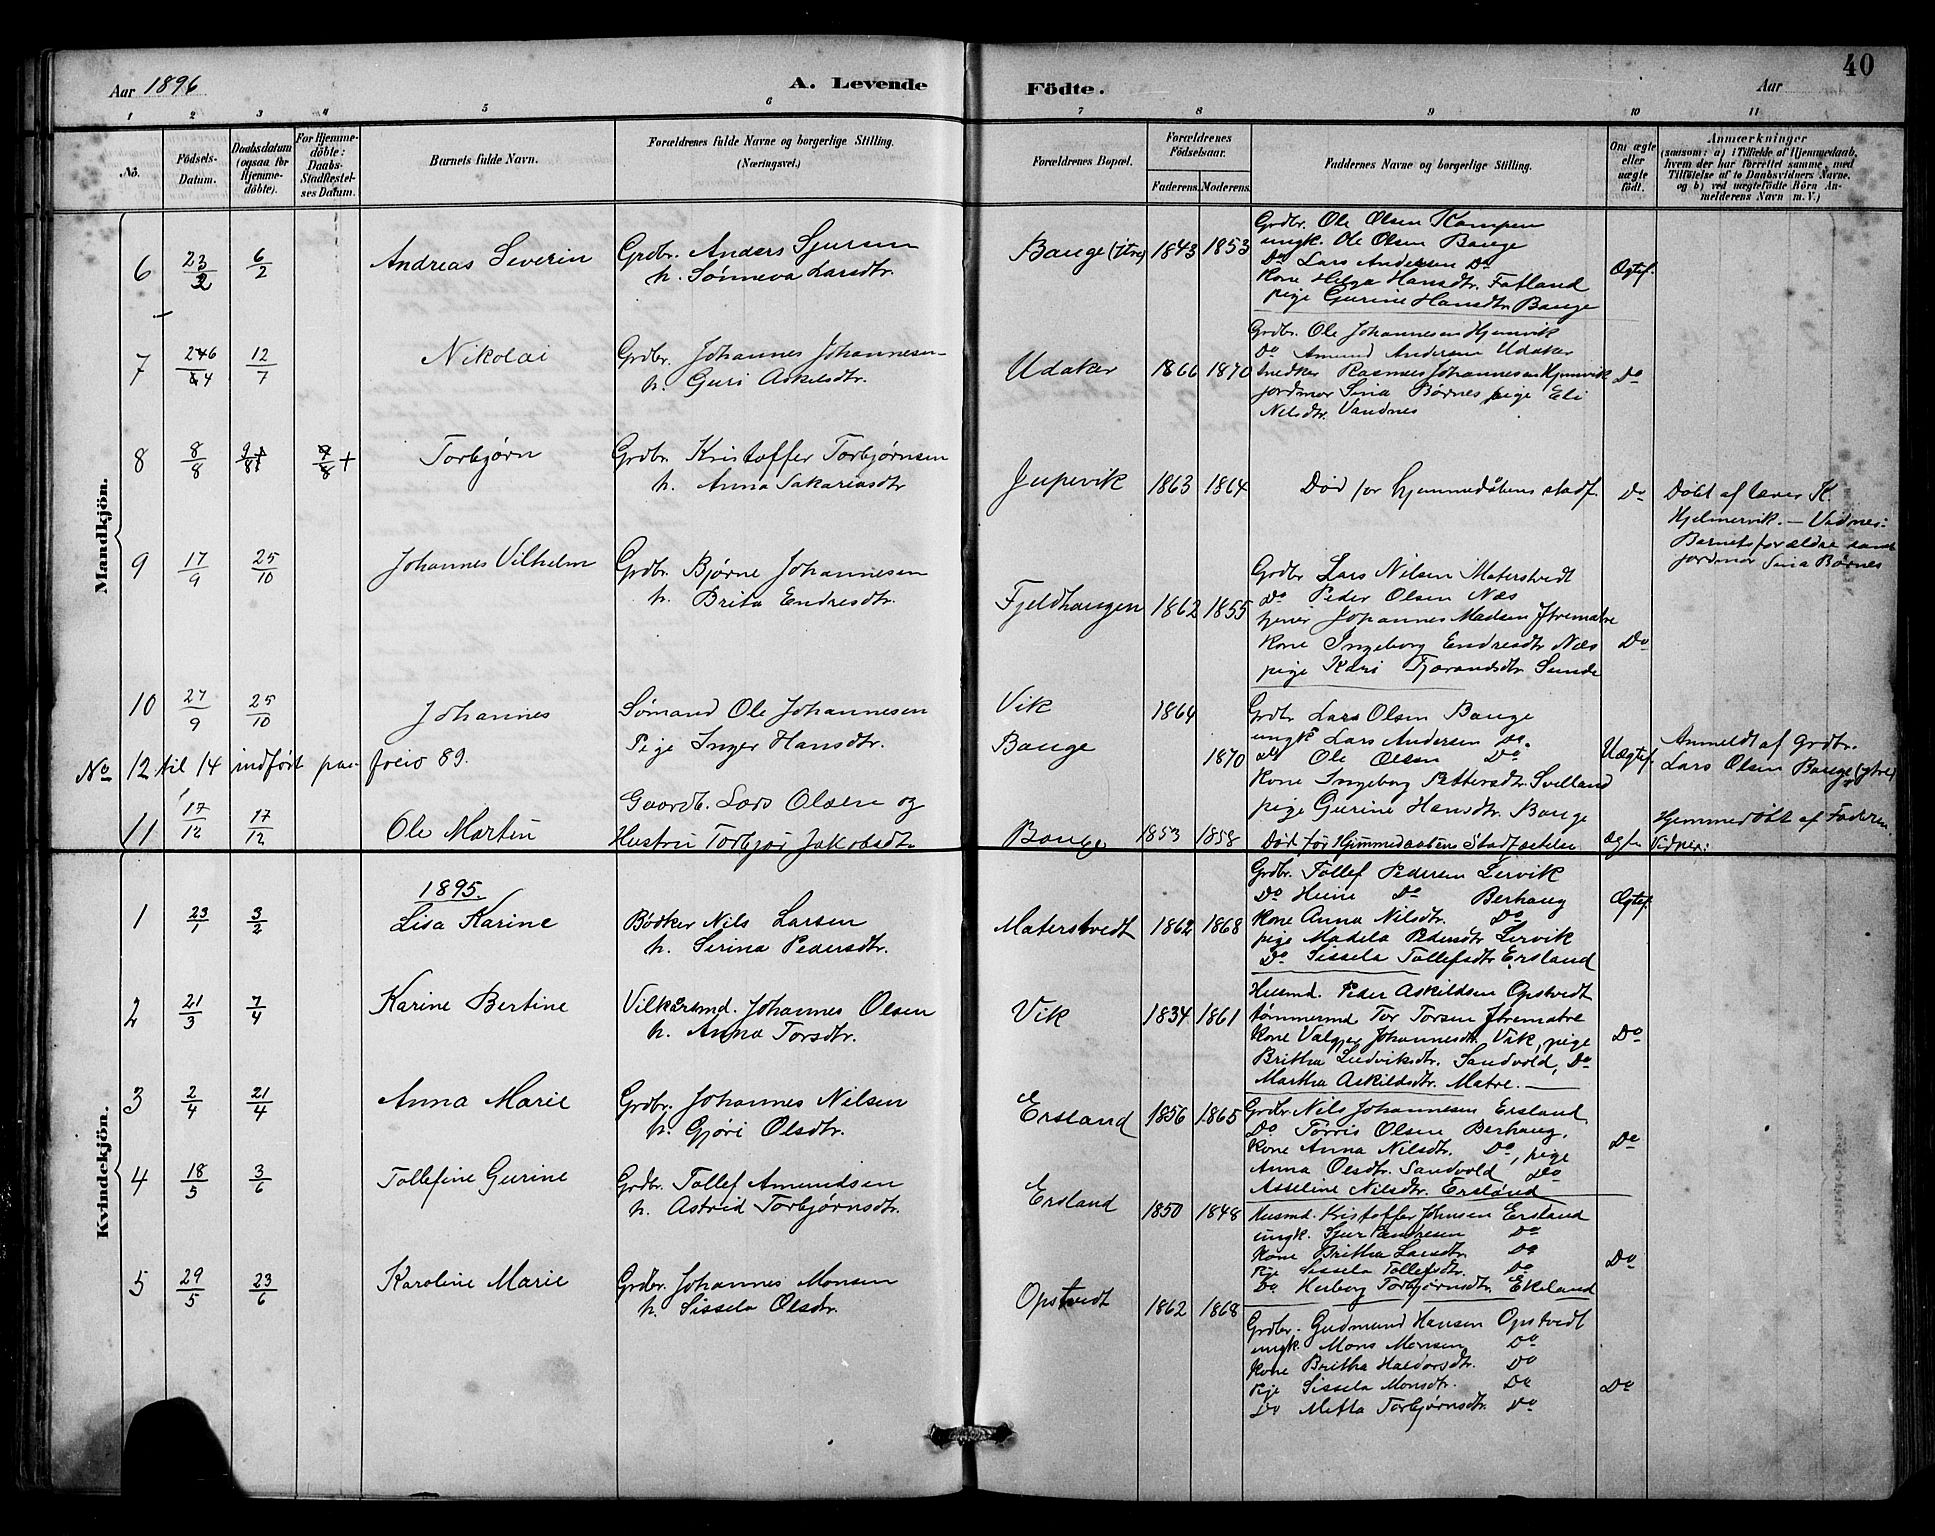 40
Aar 1896
A. Levende
Födte.
Aar
1 2 3 4 5 6 7 8 9 10 11
No.
Födsels-Datum.
Daabsdatum (ogsaa for Hjemme-döbte).
For Hjemme-döbte: Daabs-Stadfæstel-ses Datum.
Barnets fulde Navn.
Forældrenes fulde Navne og borgerlige Stilling. (Næringsvei.)
Forældrenes Bopæl.
Forældrenes Födselsaar.
Faderens. Moderens.
Faddernes Navne og borgerlige Stilling.
Om ægte eller uægte födt.
Anmærkninger
(saasom: a) i Tilfælde af Hjemmedaab,
hvem der har forrettet samme, med
Tilföielse af to Daabsvidners Navne,
og b) ved uægtefödte Börn An-
melderens Navn m. V.)
Mandkjön.
6 23/2 6/2 Andreas Severin
Grdbr. Anders Sjursen
h. Sønneva Larsdtr.
Bauge (itre) 1843 1853
Grdbr. Ole Olsen Kampen
ungk. Ole Olsen Bauge
Do Lars Andersen Do
Kone Helga Hansdtr. Fatland
pige Gurine Hansdtr. Bauge
Ægtef.
7 12/7 Nikolai
Grdbr. Johannes Johannesen
h. Guri Askelsdtr.
Udaker 1866 1870
Grdbr. Ole Johannesen Hjemvik
Do Amund Andersen Udaker
snedker Rasmus Johannesen Hjemvik
jordmor Sina Børnes pige Eli
Nilsdtr. Vandnes
Do
8 8/8 Torbjørn
Grdbr. Kristoffer Torbjørnsen
h. Anna Sakariasdtr
Jupevik 1863 1864
Død før hjemmedåbens stadf.
Do
Døbt af lærer K.
Hjelmervik. — Vidner:
Barnets forældre samt
jordmor Sina Børnes
9 17/9 25/10 Johannes Vilhelm
Grdbr. Bjørne Johannesen
h. Brita Endresdtr.
Fjeldhaugen 1862 1855
Grdbr Lars Nilsen Materstvedt
Do Peder Olsen Næs
tjener Johannes Madsen Ytrematre
Kone Ingeborg Endresdtr Næs
pige Kari Tjerandsdtr. Sunde
Do
10 27/9 25/10 Johannes
Sømand Ole Johannesen
Pige Inger Hansdtr.
Vik 1864
Bauge 1870
Grdbr Lars Olsen Bauge
ungk Lars Andersen Do.
Do Ole Olsen Do
Kone Ingeborg Pettersdtr. Svelland
pige Gurine Hansdtr. Bauge
Uægtef.
Anmeldt af Grdbr.
Lars Olsen Bauge (ytre)
No 12 til 14 indført paa folio 89.
11 17/12 17/12 Ole Martin
Gaardb. Lars Olsen og
Hustru Torbjør Jakobsdt.
Bauge 1853 1858
Død før Hjemmedaabens Stadfæstelse
ægte
Hjemmedøbt af Faderen.
Vidner:
Kvindekjön.
1895.
1 23/1 3/2 Lisa Karine
Bødker Nils Larsen
h. Serina Pedersdtr.
Materstvedt 1862 1868
Grdbr. Tollef Pedersen Lervik
Do Heine Do Berhaug
Kone Anna Nilsdtr. Do
pige Madela Pedersdtr Lervik
Do Sissela Tollefsdtr Ersland
Ægtef.
2 21/3 7/4 Karine Bertine
Vilkårsmd. Johannes Olsen
h. Anna Torsdtr.
Vik 1834 1861
Husmd. Peder Askildsen Opstvedt
tømmermd Tor Torsen Ytrematre
Kone Valgjer Johannesdtr. Vik, pige
Britha Ludviksdtr. Sandvold, Do
Martha Askildsdtr. Matre. —
Do
3 2/4 21/4 Anna Marie
Grdbr. Johannes Nilsen
h. Gjøri Olsdtr.
Ersland 1856 1865
Grdbr. Nils Johannesen Ersland
Do Torris Olsen Berhaug,
Kone Anna Nilsdtr. Do, pige
Anna Olsdtr. Sandvold Do
Asseline Nilsdtr. Ersland
Do
4 18/5 3/6 Tollefine Gurine
Grdbr. Tollef Amundsen
h. Astrid Torbjørnsdtr.
Ersland 1850 1848
Husmd. Kristoffer Johnsen Ersland
ungk. Sjur Endresen Do
Kone Britha Larsdtr. Do
Pige Sissela Tollefsdtr. Do
Do Herborg Torbjørnsdtr. Ekeland
Do
5 29/5 23/6 Karoline Marie
Grdbr. Johannes Monsen
h. Sissela Olsdtr.
Opstvedt 1862 1868
Grdbr. Gudmund Hansen Opstvedt
ungk. Mons Monsen Do
Kone Britha Haldorsdtr. Do
Pige Sissela Monsdtr. Do
Do Metta Torbjørnsdtr. Do
Do